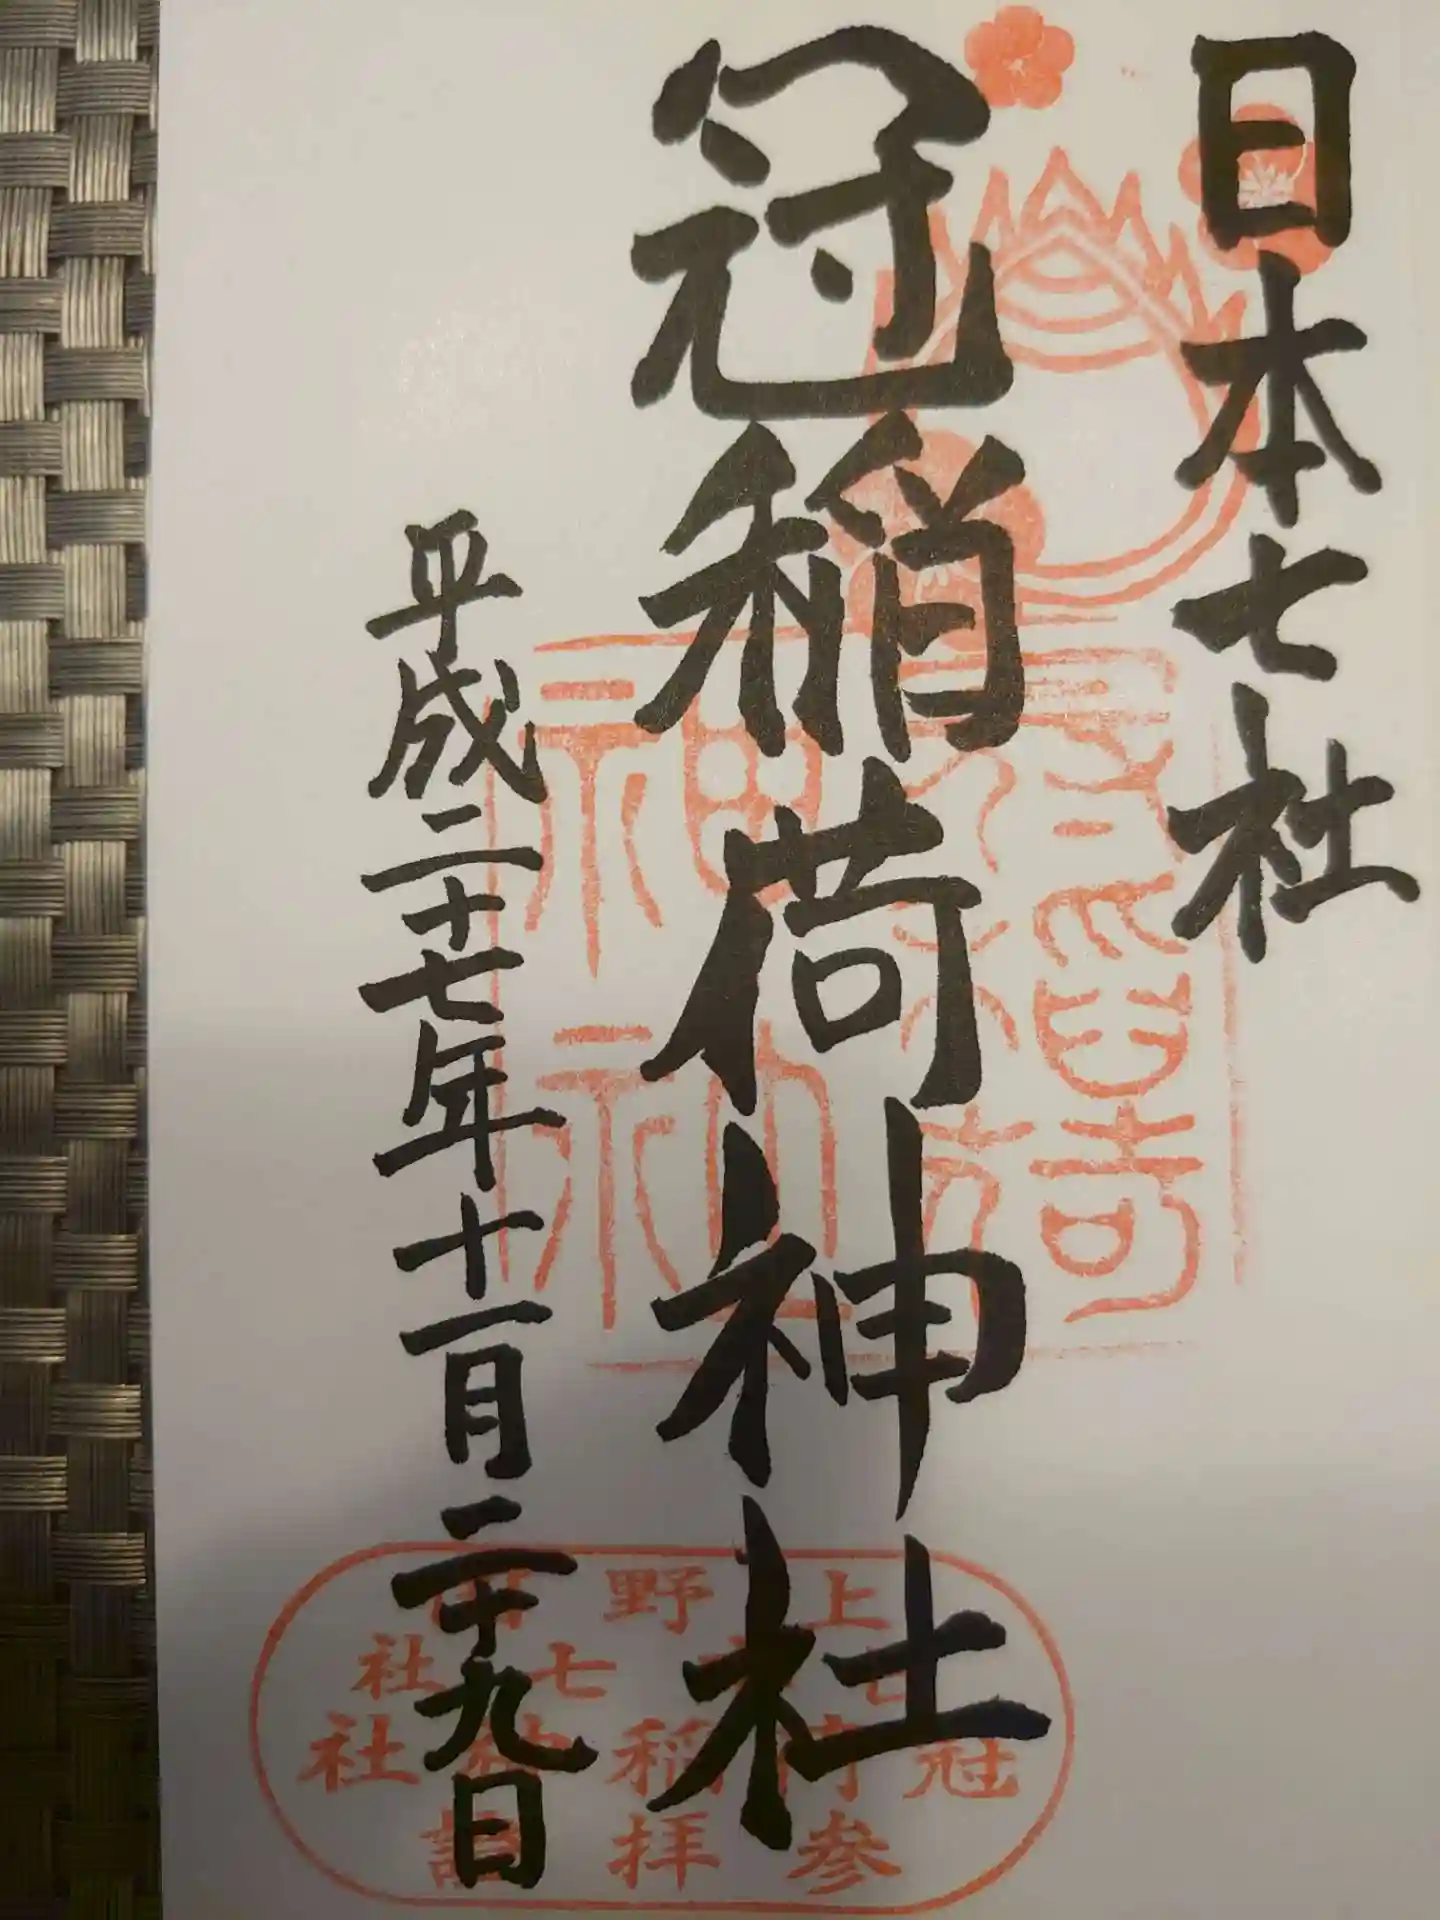 日本七社
冠稲荷神社
平成二十七年十一月二十九日
上野
七社
冠稲荷神社
参拝